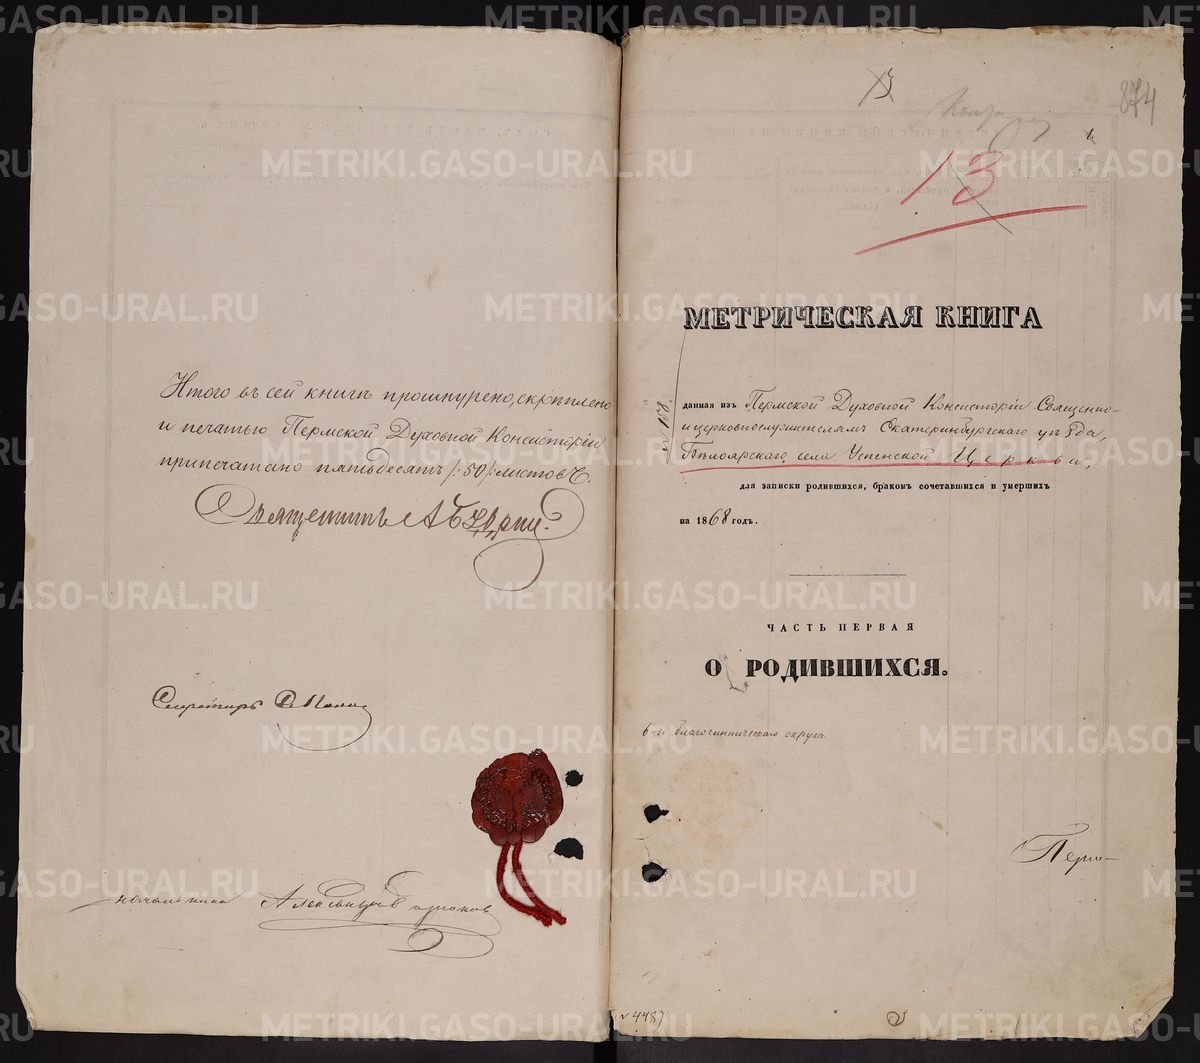 Итого въ сей книгѣ прошнурено, скрѣплено
и печатью Пермской Духовной Консисторіи
припечатано пятьдесятъ /:50/: листовъ.
Священникъ А
Секретарь
Александръ
874
13
13
МЕТРИЧЕСКАЯ КНИГА
№ 108
данная изъ Пермской Духовной Консисторіи Священно-
и церковнослужителямъ Екатеринбургскаго уѣзда,
Бѣлоярскаго села Успенской Церкви,
для записки родившихся, бракомъ сочетавшихся и умершихъ
на 1868 годъ.
ЧАСТЬ ПЕРВАЯ
О РОДИВШИХСЯ.
6-го благочинническаго округа
Перм-
METRIKI.GASO-URAL.RU